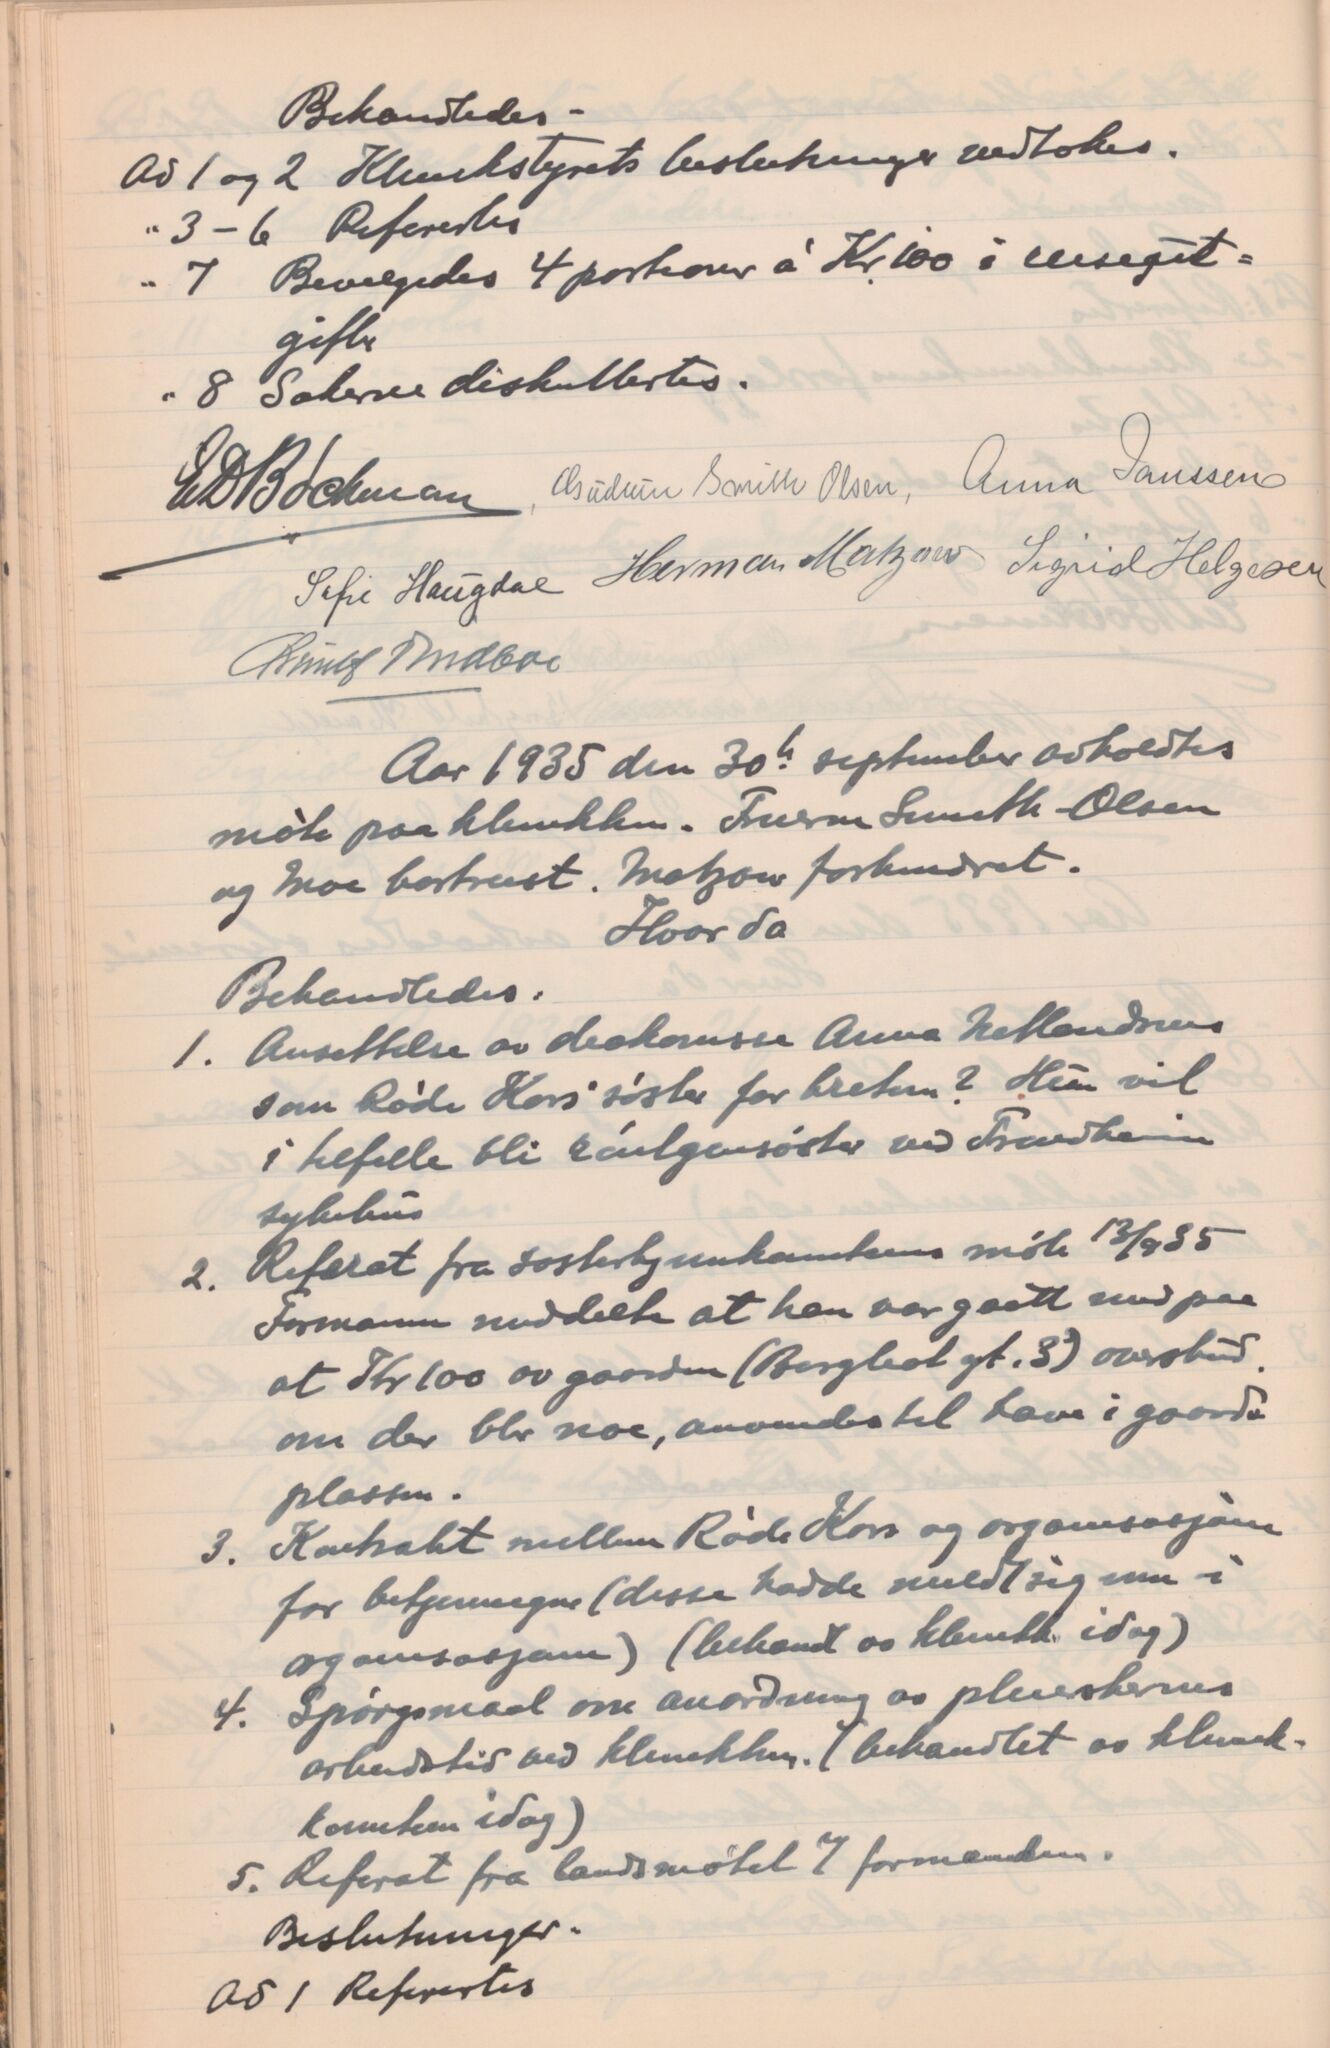 Behandledes -
Ad 1 og 2 Klinikstyrets beslutninger vedtokes.
" 3 - 6 Refertes
" 7 Bevilgedes 4 portioner á Kr. 100 i
gifter
" 8 Sakerne diskuttertes.
EDBöckman, Gudrun Smith Olsen, Anna Janssen
Sofie Haugdal Herman Matzow Sigrid Helgesen
Aar 1935 den 30te september avholdtes
möte paa klinikken. Fruerne Smith-Olsen
og Moe bortreist. Matzow forhindret.
Hvor da
Behandledes.
1. Ansettelse av diakonisse Anna
som Röde Kors söster for breten? Hun vil
i tilfelle bli röntgensöster ved Trondheim
sykehus
2. Referat fra sösterhjemkomiteens möte 12/9 35
Formann meddelte at han var gaatt med paa
at Kr 100 av gaarden (Bergljot gt. 3) overskud.
om der blir noe, anvendes til have i gaards
plassen.
3. Kontrakt mellem Röde Kors og organisasjon
for betjeningen (disse hadde meldt sig inn i
organisasjonen) (behandl av klinikk idag)
4. Spörgsmaal om anordning av pleierskernes
arbeidstid ved klinikken. (behandlet av klinik-
komiteen idag)
5. Referat fra landsmötet v/ formanden.
Beslutninger.
Ad 1 Refertes